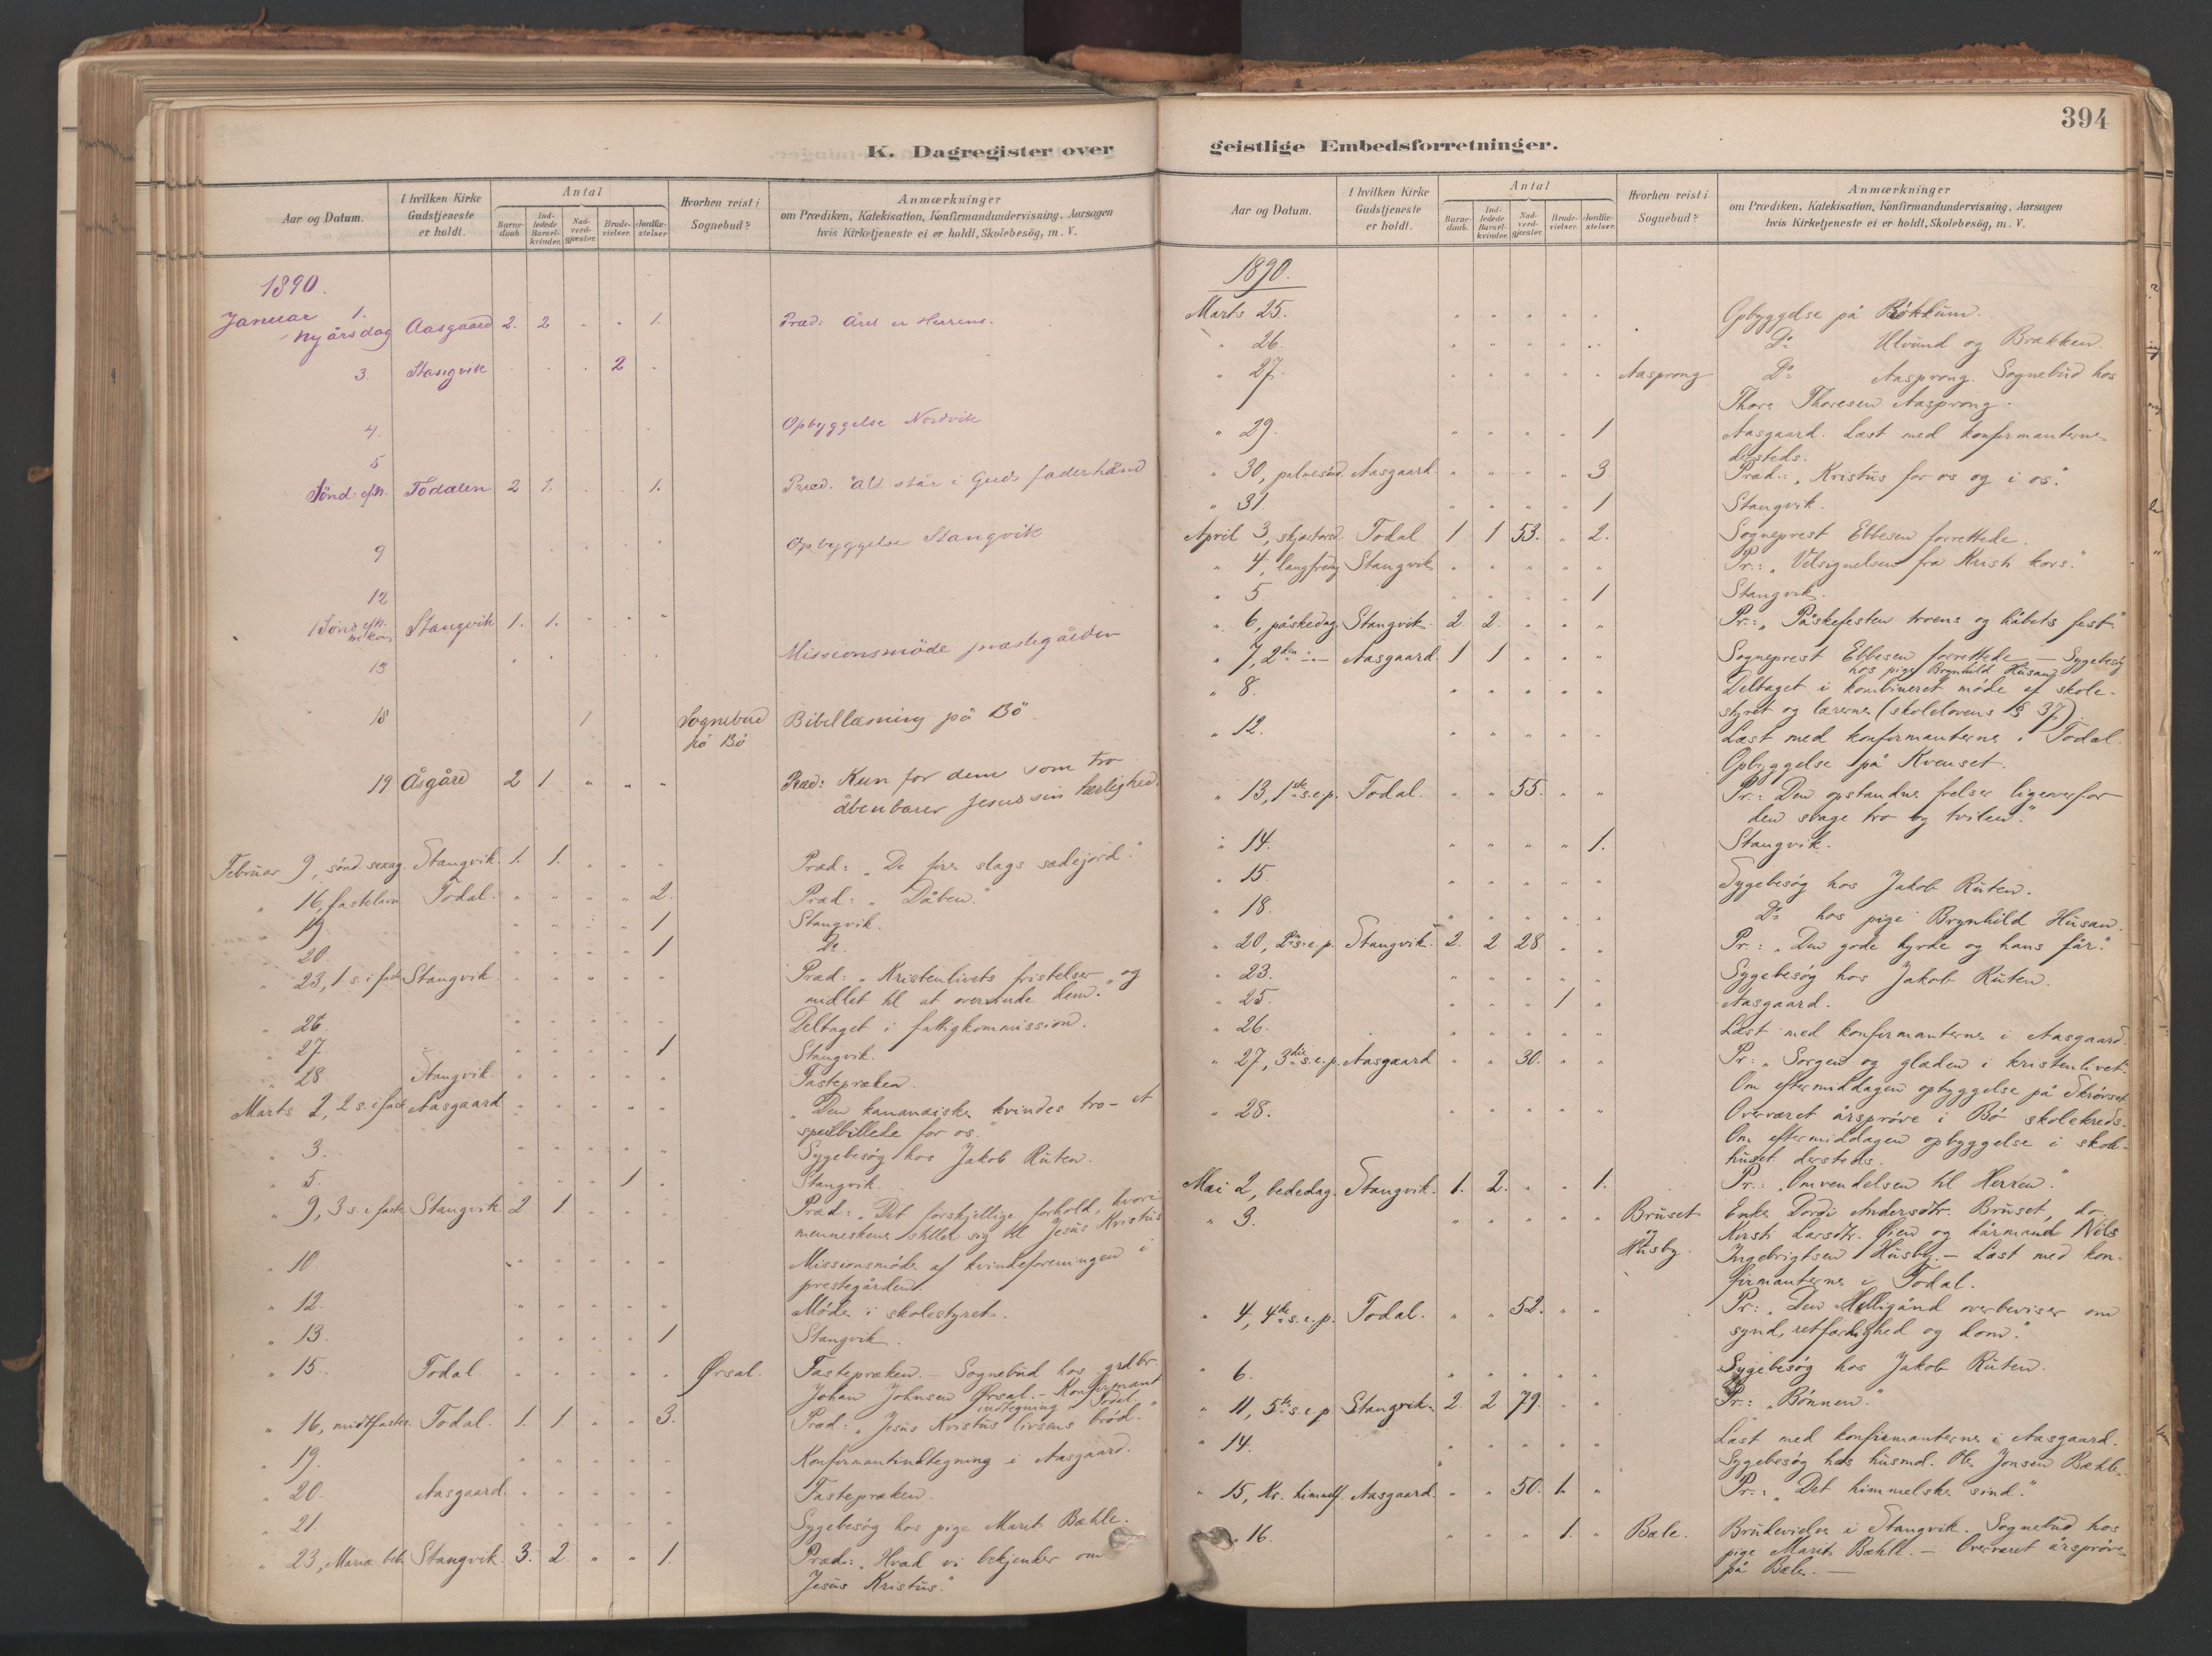 394
K. Dagregister over geistlige Embedsforretninger.
Aar og Datum. I hvilken Kirke Gudstjeneste er holdt. Antal Barne-daab. Ind-ledede Barsel-kvinder. Nad-verd-gjæster. Brude-vielser. Jordfæ-stelser. Hvorhen reist i Sognebud? Anmærkninger om Prædiken, Katekisation, Konfirmandundervisning, Aarsagen hvis Kirketjeneste ei er holdt, Skolebesög, m. V.
1890.
Januar 1. Nyårsdag Aasgaard 2. 2 " " 1. Præd: Året er Herrens.
3. Stangvik . . . 2 .
4. Opbyggelse Nordvik
5 Sönd: eft. Todalen 2 1. . . 1. Præd. "Alt står i Guds faderhånd
9 Opbyggelse Stangvik
12 1 Sönd eft. Stangvik 1. 1. " " "
13 Missionsmöde præstegården
18 1 Sognebud på Bö Bibellæsning på Bö
19 Åsgård 2 1 " " " Præd: Kun for dem som tro
åbenbarer Jesus sin herlighed.
Februar 9, sønd. sexag. Stangvik. 1. 1. " " " Præd: "De fire slags sædejord."
" 16, fastelavn Todal. " " " " 2. Præd: "Dåben."
19. " " " " 1 Stangvik.
" 20. " " " " 1 Do
" 23, 1 s. i faste Stangvik " " " " " Præd: "Kristenlivets fristelser og
midlet til at overvinde dem."
" 26. " " " " " Deltaget i fattigkommission.
" 27. " " " " 1 Stangvik.
" 28. Stangvik. " " " " " Fastepræken.
Marts 2, 2 s. i faste Aasgaard " " " " " "Den kananæiske kvindes tro - et
speilbillede for os."
" 3. " " " " " Sygebesøg hos Jakob Ruten.
" 5. " " " 1 " Stangvik.
" 9, 3 s. i faste Stangvik 2 1. " " " Præd: "Det forskjellige forhold, hvori
menneskene stiller sig til Jesus Kristus
" 10. " " " " " Missionsmøde af kvindeforeningen i
prestegården.
" 12. " " " " " Møde i skolestyret.
" 13. " " " " 1 Stangvik.
" 15. Todal. " " " " " Ørsal. Fastepræken. - Sognebud hos grdbr.
Johan Johnsen Ørsal. - Konfirmant
indtegning i Todal.
" 16, midtfaste Todal. 1. 1. " " 3. Præd: "Jesus Kristus livsens brød."
" 19. " " " " " Konfirmantindtegning i Aasgaard.
" 20. Aasgaard. " " " " " Fastepræken.
" 21. " " " " " Sygebesøg hos pige Marit Bæhle.
" 23, Mariæ beb. Stangvik. 3. 2 " " 1. Præd: "Hvad vi bekjender om
Jesus Kristus."
Aar og Datum. I hvilken Kirke Gudstjeneste er holdt. Antal Barne-daab. Ind-ledede Barsel-kvinder. Nad-verd-gjæster. Brude-vielser. Jordfæ-stelser. Hvorhen reist i Sognebud? Anmærkninger om Prædiken, Katekisation, Konfirmandundervisning, Aarsagen hvis Kirketjeneste ei er holdt, Skolebesög, m. V.
1890.
Marts 25. " " " " " Opbyggelse på Røkkum.
" 26. " " " " " Do Ulvund og Brækken.
" 27. " " " " " Aasprong Do Aasprong. Sognebud hos
Thore Thoresen Aasprong.
" 29. " " " " 1 Aasgaard. Læst med konfirmanterne
dersteds.
" 30, palmesønd. Aasgaard " " " " 3 Præd.: "Kristus for os og i os."
" 31. " " " " 1 Stangvik.
April 3, skjærtorsd. Todal 1 1 53. " 2. Sogneprest Ebbesen forrettede.
" 4, langfredag Stangvik " " " " " Pr.: "Velsignelsen fra Kristi kors."
" 5 " " " " 1 Stangvik.
" 6, påskedag. Stangvik. 2 2. " " " Pr.: "Påskefesten troens og håbets fest"
" 7, 2den -"- Aasgaard. 1 1 " " " Sogneprest Ebbesen forrettede - Sygebesøg
hos pige Brynhild Husan
" 8. " " " " " Deltaget i kombineret møde af skole-
styret og lærerne (skolelovens § 37).
" 12. " " " " " Læst med konfirmanterne i Todal.
Opbyggelse på Kvenset.
" 13, 1ste s. e. p. Todal. " " 55. " " Pr.: Den opstandne frelser ligeoverfor
den svage tro og tvilen."
" 14. " " " " 1. Stangvik.
" 15. " " " " " Sygebesøg hos Jakob Ruten.
" 18. " " " " " Do hos pige Brynhild Husan.
" 20, 2den s. e. p. Stangvik 2. 2 28 " " Pr.: "Den gode hyrde og hans får."
" 23. " " " " " Sygebesøg hos Jakob Ruten.
" 25. " " " 1 " Aasgaard.
" 26. " " " " " Læst med konfirmanterne i Aasgaard.
" 27, 3die s. e. p. Aasgaard " " 30. " " Pr: "Sorgen og glæden i kristenlivet."
Om eftermiddagen opbyggelse på Skrøvset
" 28. " " " " " Overværet årsprøve i Bø skolekreds.
Om eftermiddagen opbyggelse i skole-
huset dersteds.
Mai 2, bededag. Stangvik. 1. 2. " " 1. Pr: "Omvendelsen til Herren."
" 3. " " " " " Bruset og Husby. Enke Dordi Andersdtr. Bruset, do
Kirsti Larsdtr. Øien og kårmand Nils
Ingebrigtsen Husby. - Læst med kon-
firmanterne i Todal.
" 4, 4de s. e. p. Todal. " " 52. " " Pr: "Den Helligånd overbeviser om
synd, retfærdighed og dom."
" 6. " " " " " Sygebesøg hos Jakob Ruten.
" 11, 5te s. e. p. Stangvik. 2. 2 79. " " Pr.: "Bønnen."
" 14. " " " " " Læst med konfirmanterne i Aasgaard.
Sygebesøg hos husmd. Ole Jonsen Bæhle.
" 15, Kr. himmelf. Aasgaard. " " 50. 1. " Pr.: "Det himmelske sind."
" 16. " " " 1. " Bæle. Brudevielse i Stangvik. Sognebud hos
pige Marit Bæhle. - Overværet årsprøve
på Bæle. -